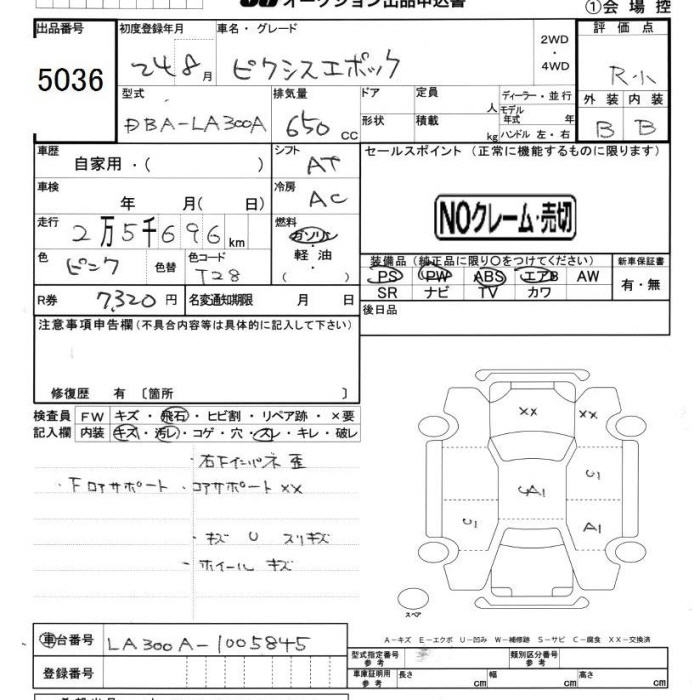 オークション出品申込書
①会場控
出品番号
5036
初度登録年月
24 8 月
車名・グレード
ピクシスエポック
2WD
・
4WD
評価点
R小
外装 内装
B B
型式
DBA-LA300A
排気量
650 cc
ドア
形状
定員
人
積載
kg
ディーラー・並行
モデル
年式 年
ハンドル 左・右
車歴
自家用・( )
シフト
AT
車検
年 月( 日)
冷房
AC
走行
2万5千696 km
燃料
ガソリン
・
軽油
・
( )
色
ピンク
色替
色コード
T28
R券 7,320 円
名変通知期限 月 日
セールスポイント (正常に機能するものに限ります)
NOクレーム・売切
装備品 (純正品に限り○をつけてください)
PS PW ABS エアB AW
SR ナビ TV カワ
新車保証書
有・無
後日品
注意事項申告欄 (不具合内容等は具体的に記入して下さい)
修復歴 有 〔箇所 〕
検査員
記入欄
FW キズ ・ 飛石 ・ ヒビ割 ・ リペア跡 ・ ×要
内装 キズ ・ 汚レ ・ コゲ ・ 穴 ・ スレ ・ キレ ・ 破レ
・右下インパネ歪
・下ロアサポート ・コアサポート××
・キズ U スリキズ
・ホイールキズ
××
××
A1
A1
スペア
A-キズ E-エクボ U-凹み W-補修跡 S-サビ C-腐食 XX-交換済
車台番号 LA300A-1005845
登録番号
型式指定番号
参考
類別区分番号
参考
車庫証明用
参考
長さ cm
幅 cm
高さ cm